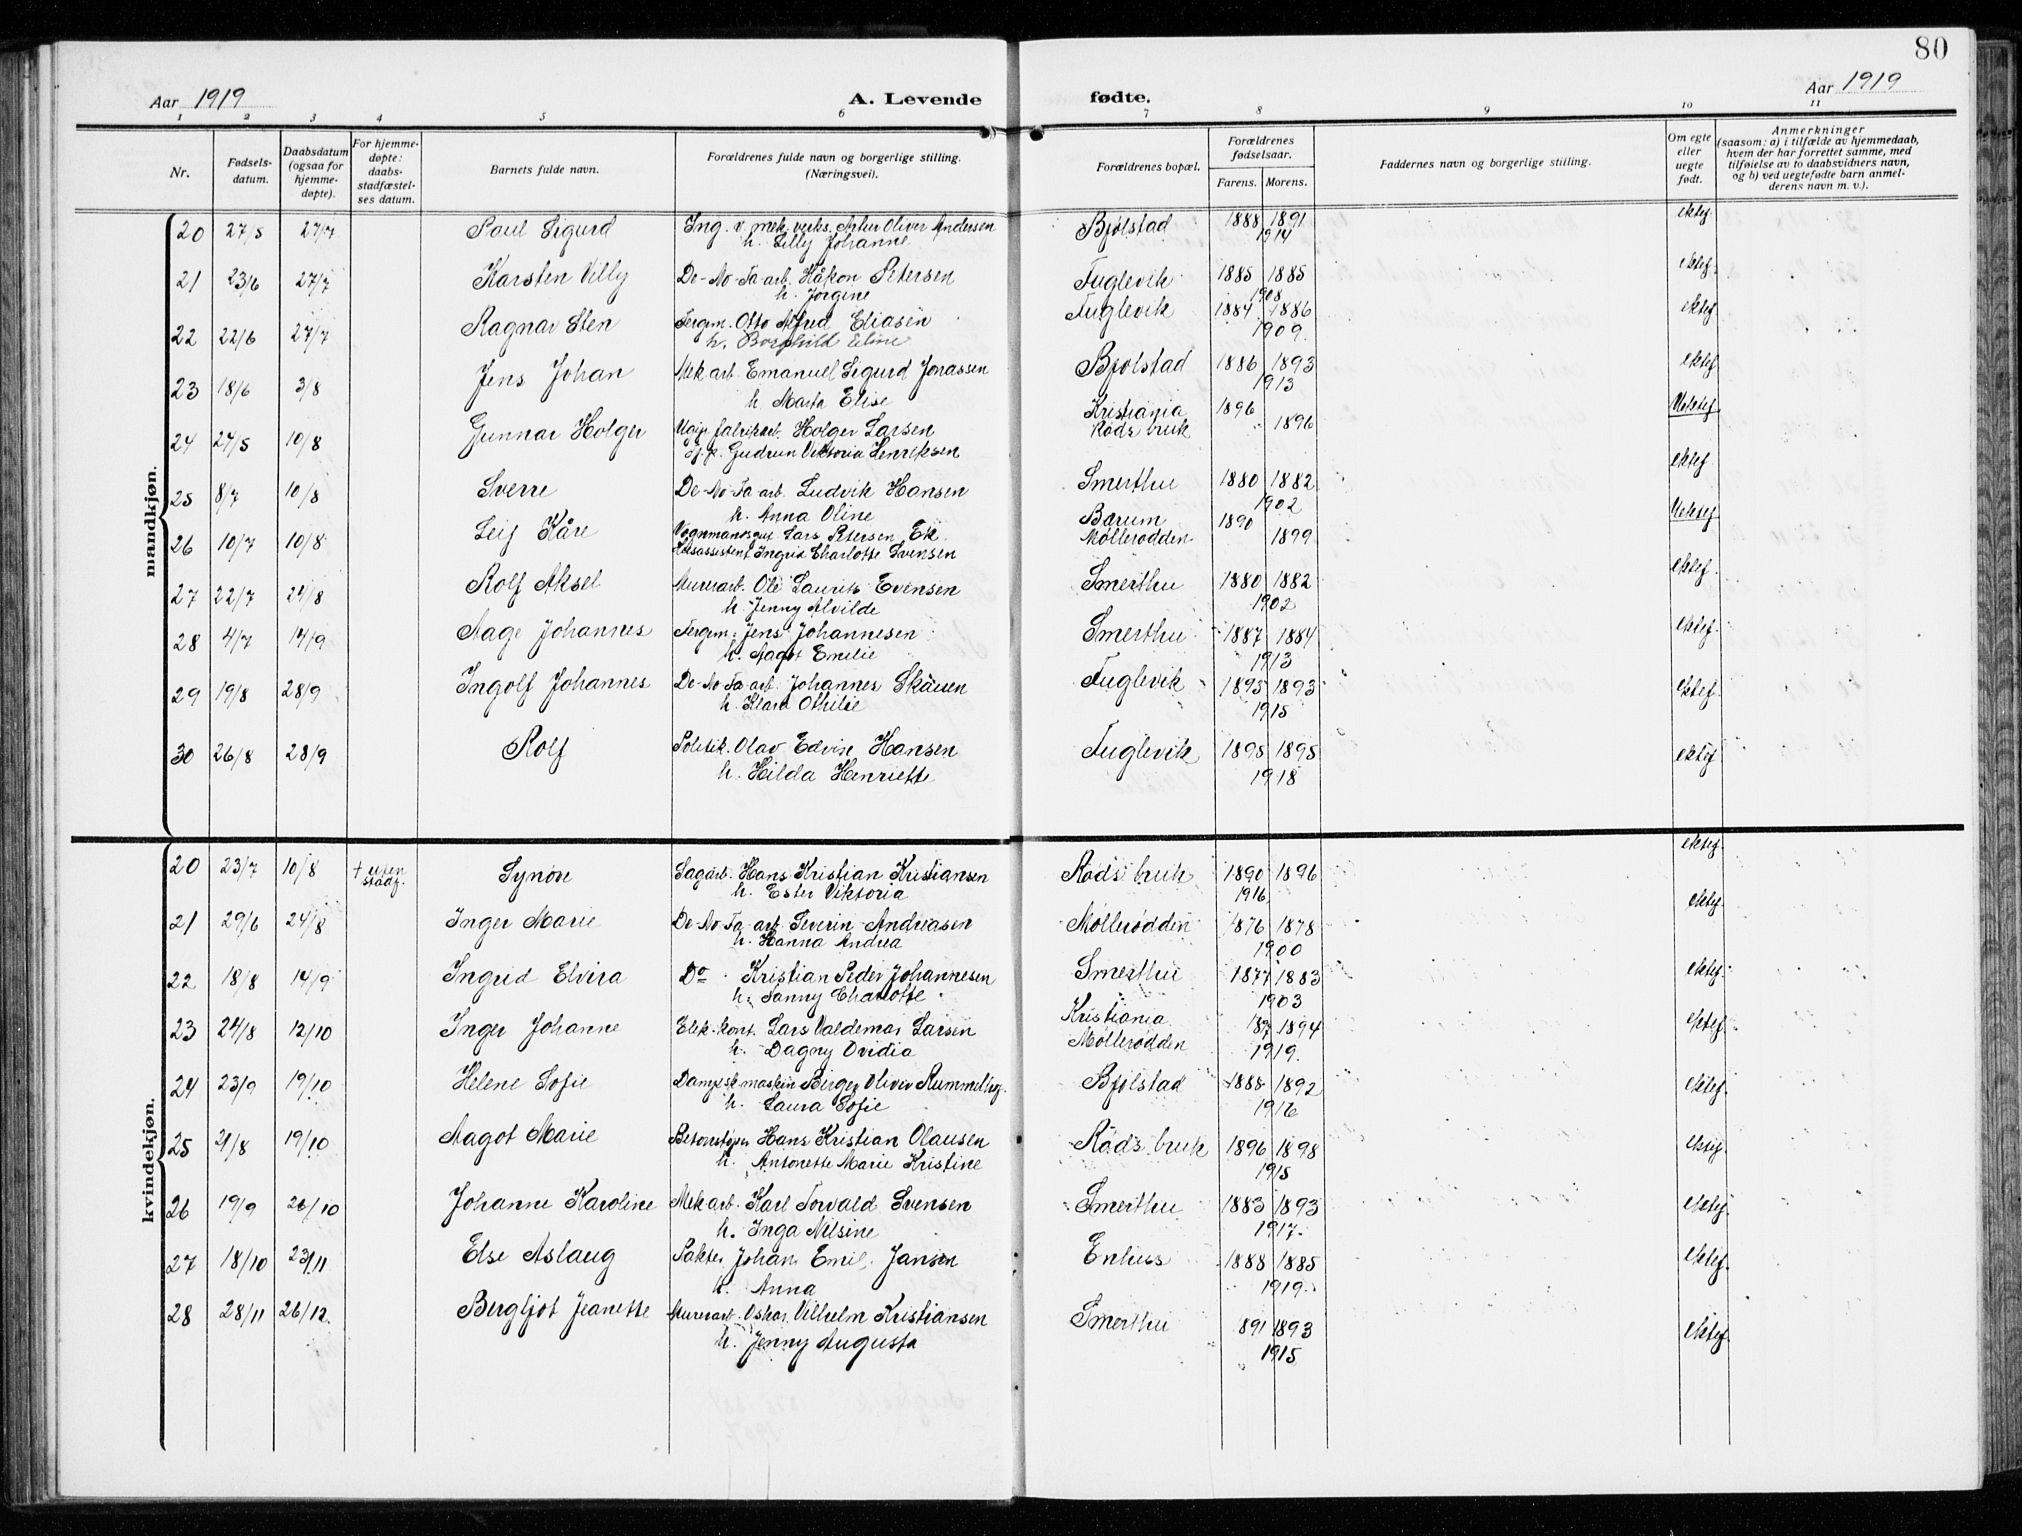 80
Aar 1919 A. Levende fødte. Aar 1919
1 2 3 4 5 6 7 8 9 10 11
Nr. Fødsels-datum. Daabsdatum (ogsaa for hjemme-døpte). For hjemme-døpte: daabs-stadfæstel-ses datum. Barnets fulde navn. Forældrenes fulde navn og borgerlige stilling. (Næringsvei). Forældrenes bopæl. Forældrenes fødselsaar. Farens. Morens. Faddernes navn og borgerlige stilling. Om egte eller uegte født. Anmerkninger (saasom: a) i tilfælde av hjemmedaab, hvem der har forrettet samme, med tilføielse av to daabsvidners navn, og b) ved uegtefødte barn anmel-derens navn m. v.).
mandkjøn.
20 27/5 27/7 Paul Sigurd Ing. v. mek. verks. Artur Oliver Andersen Bjølstad 1888 1891 ektef.
h. Lilly Johanne 1914
21 23/6 27/7 Karsten Villy De-No-Fa arb. Håkon Petersen Fuglevik 1885 1885 ektef.
h. Jørgine 1908
22 22/6 27/7 Ragnar Sten Fergm. Otto Alfred Eliasen Fuglevik 1884 1886 ektef.
h. Borghild Eline 1909.
23 18/6 3/8 Jens Johan Mek arb. Emanuel Sigurd Jonassen Bjølstad 1886 1893 ektef.
h. Marta Elise 1913
24 27/5 10/8 Gunnar Holger Ugip. fabrikarb. Holger Larsen Kristiania 1896 Uektef.
Gudrun Viktoria Henriksen Røds bruk 1896
25 8/7 10/8 Sverre De-No-Fa arb. Ludvik Hansen Smerthu 1880 1882 ektef.
h. Anna Oline 1902
26 10/7 10/8 Leif Kåre Lars Petersen Ek. Bærum 1890 Uektef.
Ingrid Charlotte Svensen Møllerodden 1899
27 22/7 24/8 Rolf Aksel Murerarb. Ole Laurits Evensen Smerthu 1880 1882 ektef.
h. Jenny Alvilde 1902
28 4/7 14/9 Aage Johannes Fergm. Jens Johannesen Smerthu 1887 1884 ektef.
h. Aagot Emilie 1913
29 19/8 28/9 Ingolf Johannes De-No-Fa arb. Johannes Skauen Fuglevik 1893 1893 ektef.
h. Klara Othilie 1915
30 26/8 28/9 Rolf Politik. Olav Edvin Hansen Fuglevik 1895 1895 ektef.
h. Hilda Henriette 1918
kvindekjøn.
20 23/7 10/8 + uten stadf. Synøve Sagarb. Hans Kristian Kristiansen Røds bruk 1890 1896 ektef.
h. Ester Viktoria 1916
21 29/6 24/8 Inger Marie De-No-Fa arb. Severin Andreasen Møllerodden 1876 1878 ektef.
h. Hanna Andrea 1900
22 18/8 14/9 Ingrid Elvira Do Kristian Peder Johannesen Smerthu 1877 1883 ektef.
h. Fanny Charlotte 1903
23 24/8 12/10 Inger Johanne Elek. kont. Lars Valdemar Larsen Kristiania 1894 ektef.
h. Dagny Ovidia Møllerodden 1919.
24 23/9 19/10 Helene Sofie Dampsk. maskin Birger Oliver Rummelhof. Bjølstad 1888 1892 ektef.
h. Laura Sofie 1916
25 21/8 19/10 Aagot Marie Betonstøper Hans Kristian Olausen Røds bruk 1896 1898 ektef.
h. Antonette Marie Kristine 1915
26 19/9 26/10 Johanne Karoline Mek arb. Karl Torvald Svensen Smerthu 1883 1893 ektef.
h. Inga Nilsine 1917.
27 18/10 23/11 Else Aslaug Johan Emil Jansen Enhus 1888 1885 ektef.
h. Anna 1919.
28 28/11 26/12. Bergljot Jeanette Murerarb. Oskar Vilhelm Kristiansen Smerthu 891 1893 ektef.
h. Jenny Augusta 1915